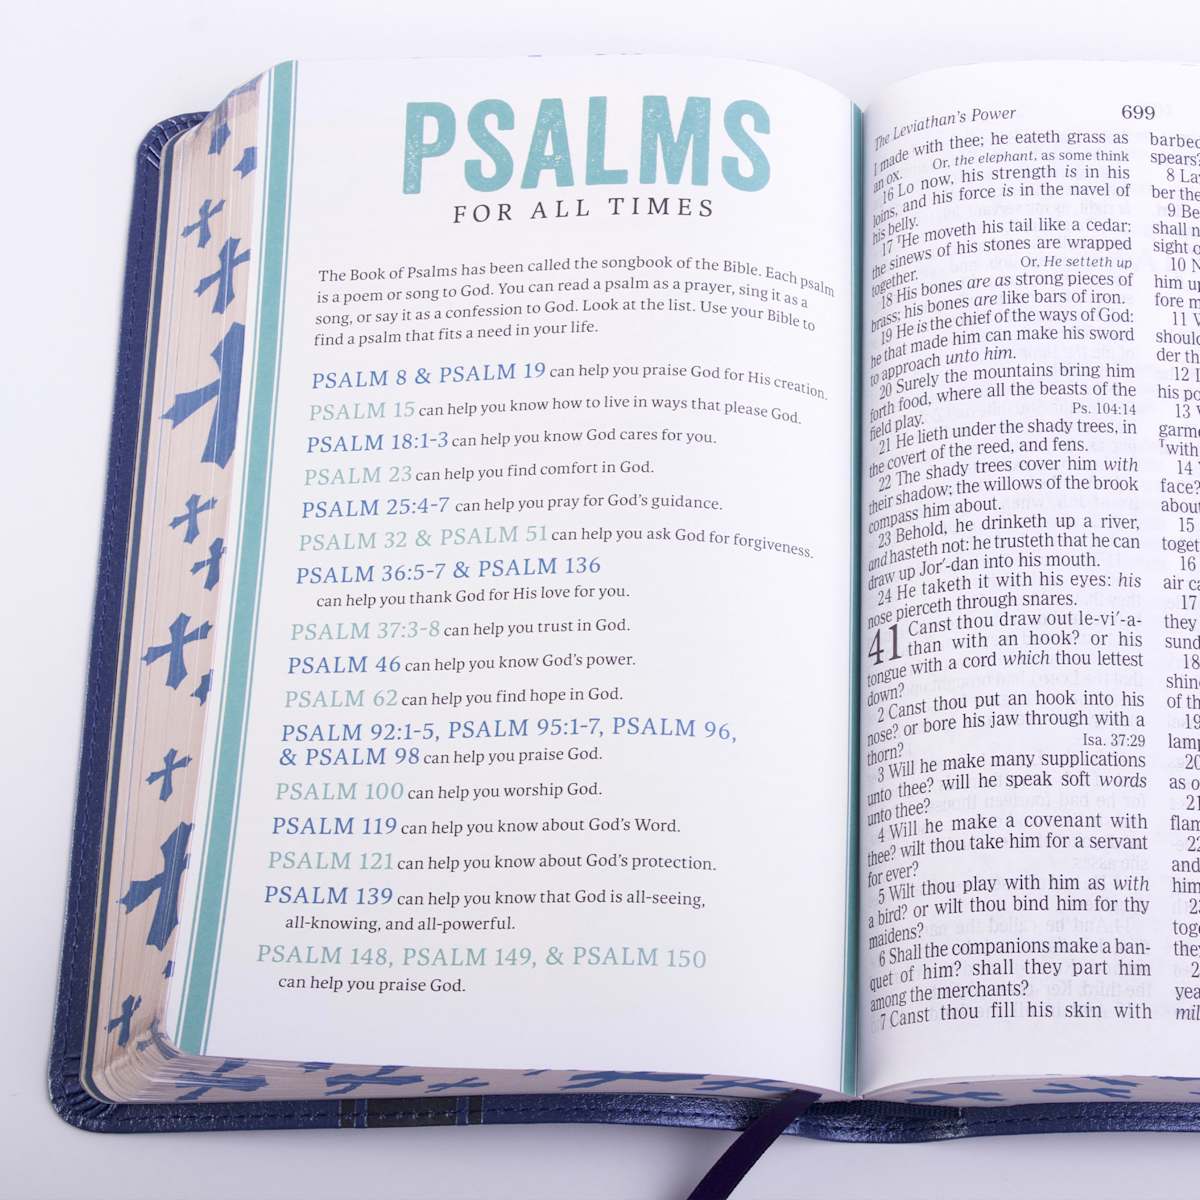 PSALMS
FOR ALL TIMES
The Book of Psalms has been called the songbook of the Bible. Each psalm
is a poem or song to God. You can read a psalm as a prayer, sing it as a
song, or say it as a confession to God. Look at the list. Use your Bible to
find a psalm that fits a need in your life.
PSALM 8 & PSALM 19 can help you praise God for His creation.
PSALM 15 can help you know how to live in ways that please God.
PSALM 18:1-3 can help you know God cares for you.
PSALM 23 can help you find comfort in God.
PSALM 25:4-7 can help you pray for God's guidance.
PSALM 32 & PSALM 51 can help you ask God for forgiveness.
PSALM 36:5-7 & PSALM 136
can help you thank God for His love for you.
PSALM 37:3-8 can help you trust in God.
PSALM 46 can help you know God's power.
PSALM 62 can help you find hope in God.
PSALM 92:1-5, PSALM 95:1-7, PSALM 96,
& PSALM 98 can help you praise God.
PSALM 100 can help you worship God.
PSALM 119 can help you know about God's Word.
PSALM 121 can help you know about God's protection.
PSALM 139 can help you know that God is all-seeing,
all-knowing, and all-powerful.
PSALM 148, PSALM 149, & PSALM 150
can help you praise God.
The Leviathan's Power 699
I made with thee; he eateth grass as
an ox. Or, the elephant, as some think
16 Lo now, his strength is in his
loins, and his force is in the navel of
his belly.
17 THe moveth his tail like a cedar:
the sinews of his stones are wrapped
together. Or, He setteth up
18 His bones are as strong pieces of
brass; his bones are like bars of iron.
19 He is the chief of the ways of God:
he that made him can make his sword
to approach unto him.
20 Surely the mountains bring him
forth food, where all the beasts of the
field play. Ps. 104:14
21 He lieth under the shady trees, in
the covert of the reed, and fens.
22 The shady trees cover him with
their shadow; the willows of the brook
compass him about.
23 Behold, he drinketh up a river,
and hasteth not: he trusteth that he can
draw up Jor'-dan into his mouth.
24 He taketh it with his eyes: his
nose pierceth through snares.
41 Canst thou draw out le-vi'-a-
than with an hook? or his
tongue with a cord which thou lettest
down?
2 Canst thou put an hook into his
nose? or bore his jaw through with a
thorn? Isa. 37:29
3 Will he make many supplications
unto thee? will he speak soft words
unto thee?
4 Will he make a covenant with
thee? wilt thou take him for a servant
for ever?
5 Wilt thou play with him as with
a bird? or wilt thou bind him for thy
maidens?
6 Shall the companions make a ban-
quet of him? shall they part him
among the merchants?
7 Canst thou fill his skin with
barbed
spears?
8
ber the
9
shall
sight
10
him up
fore
11
should
der
12
his
13
with
14
face?
about
15
16
air
17
they
18
of
19
20
as
21
22
and
him
23
they